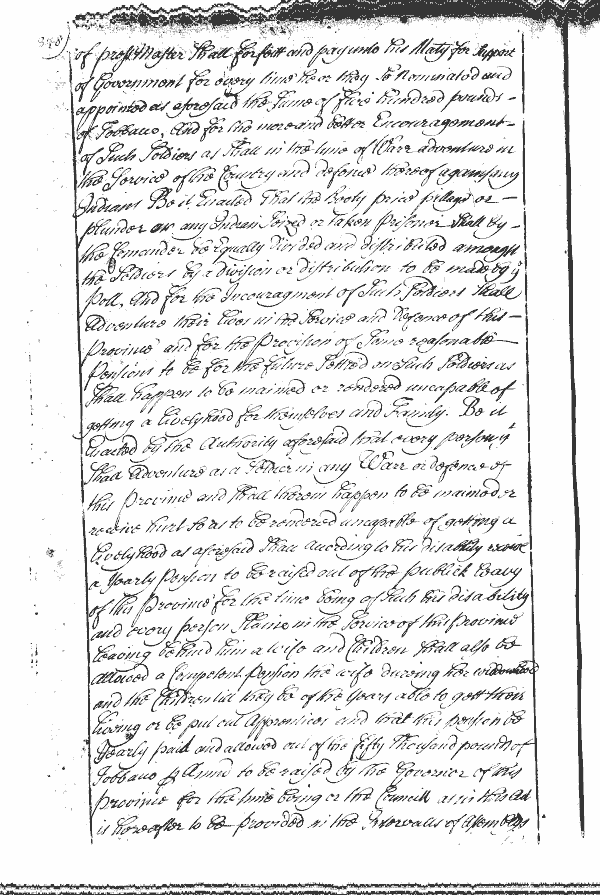 of press Master Shall forfeit and pay unto his Maty for Support
of Government for every time he or they So Nominated and
appointed as aforesaid the Sume of five hundred pounds
of Tobbacco, And for the more and better Encouragement
of Such Soldiers as Shall in the time of Warr adventure in
the Service of the Country and defence thereof against any
Indians Be it Enacted That the booty price pillage or
plunder or any Indian Seized or taken prisoner Shall by
the Comander be Equally divided and distributed amongst
the Soldiers by a division or distribution to be made by ye
Poll, And for the Encouragment of Such Soldiers Shall
Adventure their Lives in the Service and Defence of this
Province and for the Provision of Some reasonable
Pensions to be for the future Setled on Such Soldiers as
Shall happen to be maimed or rendered uncapable of
getting a Livelyhood for themselves and Family. Be it
Enacted by the Authority aforesaid that every person yt
Shall Adventure as a Soldier in any Warr or defence of
this Province and Shall therein happen to be maimed or
receive hurt So as to be rendered uncapable of getting a
Livelyhood as aforesaid Shall according to his disability receive
a Yearly Pension to be raised out of the publick Leavy
of this Province for the time being of Such his disability
and every person Slaine in the Service of this Province
leaving behind him a wife and Children Shall also be
allowed a Competent Pension the wife dureing her widowhood
and the Children till they be of the Years able to gett their
living or be put out Apprentices and that this pension be
Yearly paid and allowed out of the fifty Thousand pounds of
Tobbacco p Annu to be raised by the Governor of this
Province for the time being or the Councill as in this Act
is hereafter to be provided in the Intervalls of Assemblys